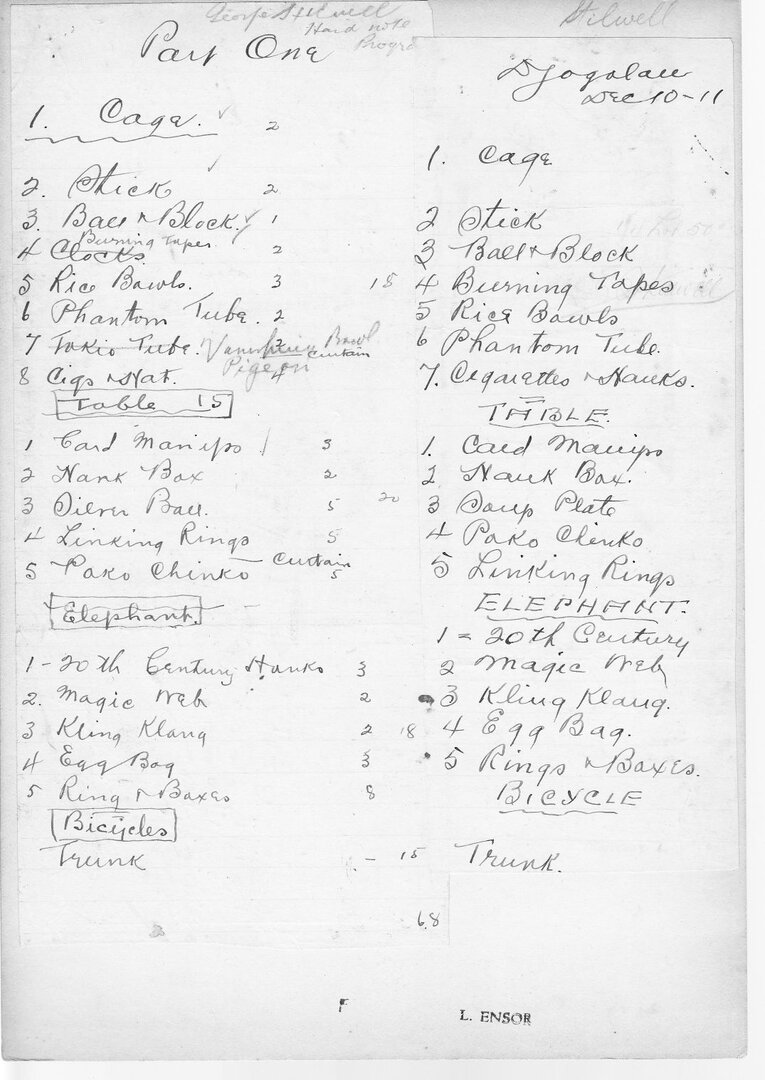 George Stilwell
Hand note
Part One
1. Cage. ✓ 2
2. Stick ✓ 2
3. Ball & Block. ✓ 1
Burning Tapes
4 Clocks. 2
5 Rice Bowls. 3 15
6 Phantom Tube. 2
7 Tokio Tube. Bowl 2 Curtain
Pigeon
8 Cigs & Hat. 4
Table 15
1 Card Manips / 3
2 Hank Box 2
3 Silver Ball. 5 20
4 Linking Rings 5
5 Poko Chinko Curtain 5
Elephant.
1 - 20th Century Hanks 3
2. Magic Web 2
3 Kling Klang 2 18
4 Egg Bag 3
5 Ring & Boxes 8
Bicycles
Trunk - 15
68
Stilwell
Djogolau
DEC 10-11
1. Cage
2 Stick
3 Ball & Block
4 Burning Tapes
5 Rice Bowls
6 Phantom Tube.
7. Cigarettes & Hanks.
TABLE.
1. Card Manips
2 Hank Box.
3 Soup Plate
4 Poko Chinko
5 Linking Rings
ELEPHANT.
1 = 20th Century
2 Magic Web
3 Kling Klang.
4 Egg Bag.
5 Rings & Boxes.
BICYCLE
Trunk.
L. ENSOR